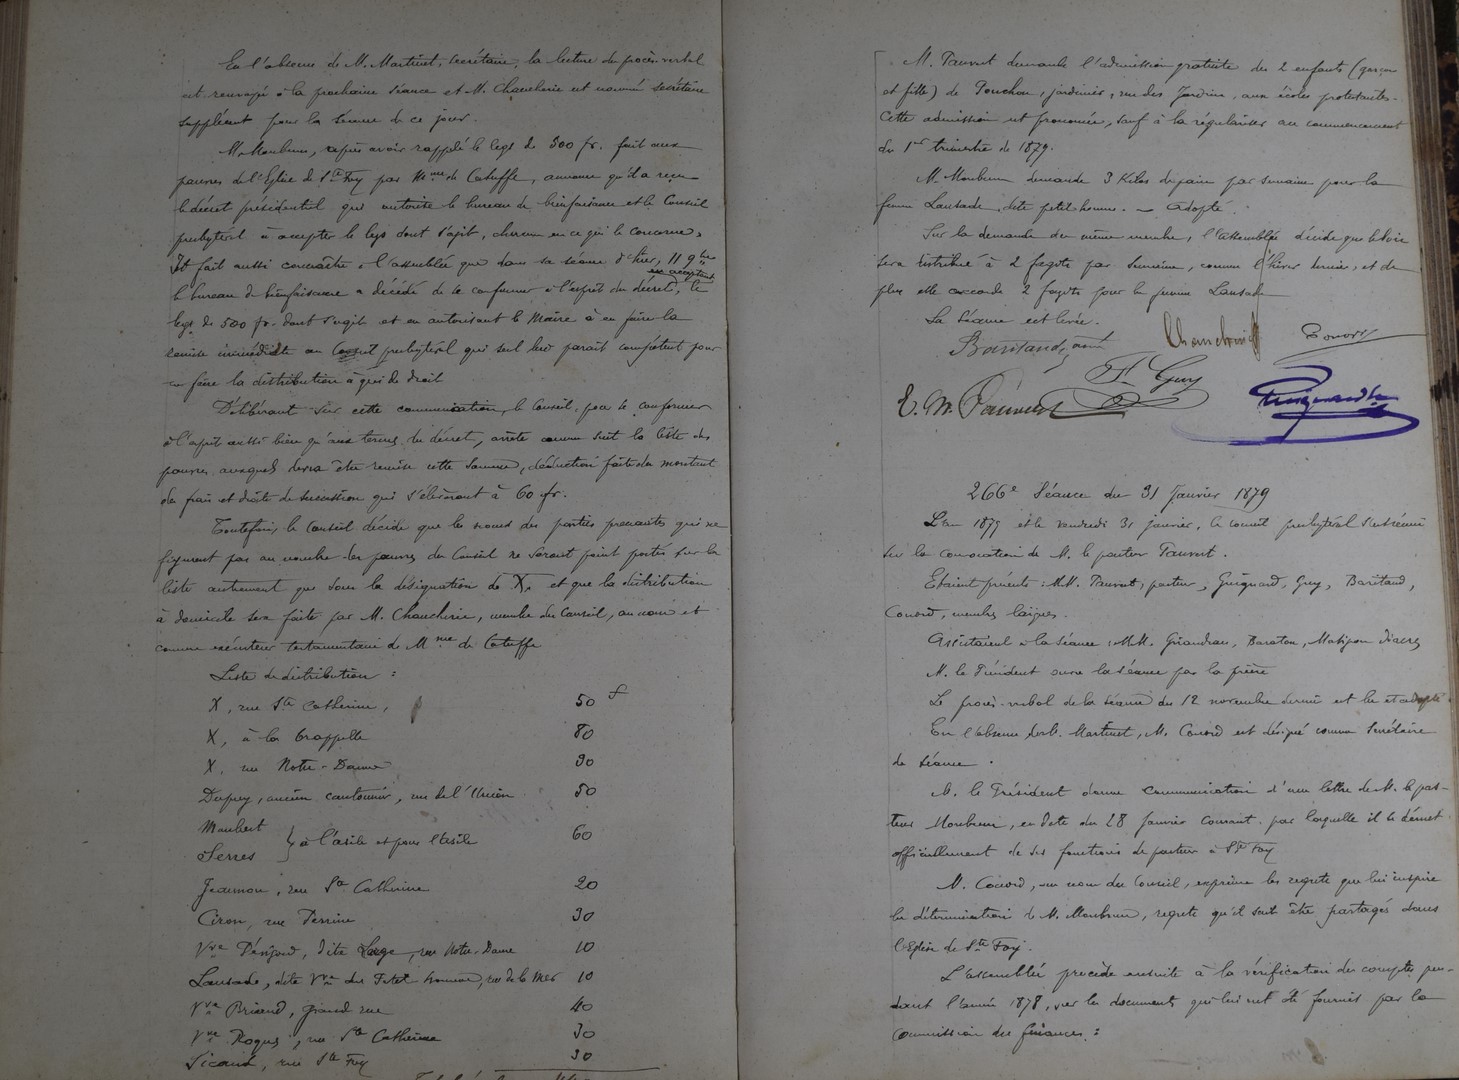 En l'absence de M. Martinet, secrétaire, la lecture du procès-verbal
est renvoyée à la prochaine séance et M. Chaucherie est nommé secrétaire
suppléant pour la séance de ce jour.
M. Monbrun, après avoir rappelé le legs de 500 fr. fait aux
pauvres de l'Eglise de Ste Foy par Mme de Catuffe, annonce qu'il a reçu
le décret présidentiel qui autorise le bureau de bienfaisance et le Conseil
presbytéral à accepter le legs dont s'agit, chacun en ce qui le concerne,
Il fait aussi connaître à l'assemblée que dans sa séance d'hier, 11 9bre
en acceptant
le bureau de bienfaisance a décidé de se conformer à l'esprit du décret, le
legs de 500 fr. dont s'agit et en autorisant le Maire à en faire la
remise immédiate au Conseil presbytéral qui seul lui paraît compétent pour
en faire la distribution à qui de droit
Délibérant sur cette communication, le Conseil, pour se conformer
à l'esprit aussi bien qu'aux termes du décret, arrête comme suit la liste des
pauvres auxquels devra être remise cette somme, déduction faite du montant
des frais et droits de succession qui s'élèveront à 60 fr.
Toutefois, le Conseil décide que les noms des parties prenantes qui ne
figurent pas au nombre des pauvres du Conseil ne seront point portés sur la
liste autrement que sous la désignation de X, et que la distribution
à domicile sera faite par M. Chaucherie, membre du Conseil, au nom et
comme exécuteur testamentaire de Mme de Catuffe
Liste de distribution :
X, rue Ste Catherine, 50 f
X, à la Brappelle 80
X, rue Notre-Dame 90
Dupuy, ancien cantonnier, rue de l'Union 50
Maubert
Serres } à l'asile et pour l'asile 60
Jeammon, rue Ste Catherine 20
Ciron, rue Perrine 30
Vve Périgord, dite Lage, rue Notre-Dame 10
Lansade, dite Vve du Petit homme, rue de la Mer 10
Vve Briand, grand rue 40
Vve Roques, rue Ste Catherine 30
Sicaud, rue Ste Foy 30
M. Pauvert demande l'admission gratuite des 2 enfants (garçon
et fille) de Ponchou, jardinier, rue des Jardins, aux écoles protestantes.
Cette admission est prononcée, sauf à la régulariser au commencement
du 1er trimestre de 1879.
M. Monbrun demande 3 Kilos de pain par semaine pour la
femme Lansade, dite petit homme. — Adopté.
Sur la demande du même membre, l'assemblée décide que le bois
sera distribué à 2 fagots par semaine, comme l'hiver dernier, et de
plus elle accorde 2 fagots pour la femme Lansade
La séance est levée.
Baritaud, aîné Chaucherie Couord
E. M. Pauvert F. Guy Guignard
266e Séance du 31 Janvier 1879
L'an 1879 et le vendredi 31 janvier, le conseil presbytéral s'est réuni
sur la convocation de M. le pasteur Pauvert.
Etaient présents : MM. Pauvert, pasteur, Guignard, Guy, Baritaud,
Couord, membres laïques.
Assistaient à la séance : MM. Giraudeau, Baraton, Matignon diacres
M. le Président ouvre la séance par la prière
Le procès-verbal de la séance du 12 novembre dernier est lu et adopté.
En l'absence de M. Martinet, M. Couord est désigné comme Secrétaire
de séance.
M. le Président donne communication d'une lettre de M. le pas-
teur Monbrun, en date du 28 Janvier courant par laquelle il se démet
officiellement de ses fonctions de pasteur à Ste Foy
M. Couord, au nom du Conseil, exprime les regrets que lui inspire
la détermination de M. Monbrun, regrets qu'il sait être partagés dans
l'église de Ste Foy.
L'assemblée procède ensuite à la vérification des comptes pen-
dant l'année 1878, sur les documents qui lui ont été fournis par la
commission des finances :